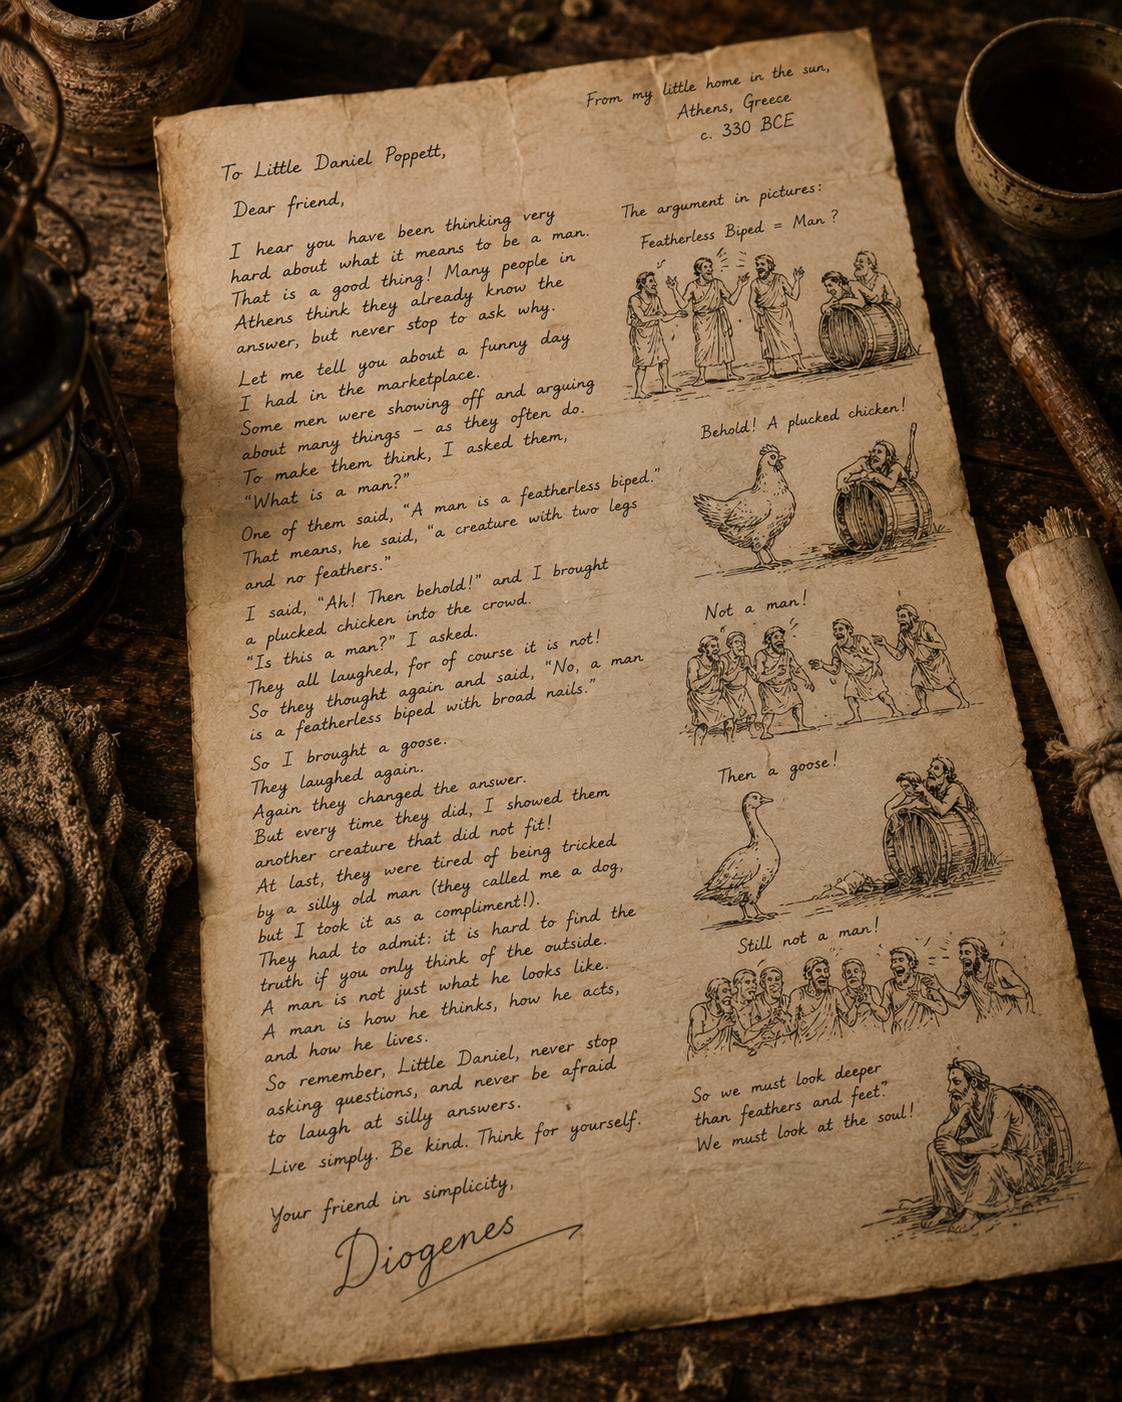 From my little home in the sun,
Athens, Greece
c. 330 BCE
To Little Daniel Poppett,
Dear friend,
I hear you have been thinking very
hard about what it means to be a man.
That is a good thing! Many people in
Athens think they already know the
answer, but never stop to ask why.
Let me tell you about a funny day
I had in the marketplace.
Some men were showing off and arguing
about many things – as they often do.
To make them think, I asked them,
“What is a man?”
One of them said, “A man is a featherless biped.”
That means, he said, “a creature with two legs
and no feathers.”
I said, “Ah! Then behold!” and I brought
a plucked chicken into the crowd.
“Is this a man?” I asked.
They all laughed, for of course it is not!
So they thought again and said, “No, a man
is a featherless biped with broad nails.”
So I brought a goose.
They laughed again.
Again they changed the answer.
But every time they did, I showed them
another creature that did not fit!
At last, they were tired of being tricked
by a silly old man (they called me a dog,
but I took it as a compliment!).
They had to admit: it is hard to find the
truth if you only think of the outside.
A man is not just what he looks like.
A man is how he thinks, how he acts,
and how he lives.
So remember, Little Daniel, never stop
asking questions, and never be afraid
to laugh at silly answers.
Live simply. Be kind. Think for yourself.
Your friend in simplicity,
Diogenes
The argument in pictures:
Featherless Biped = Man?
Behold! A plucked chicken!
Not a man!
Then a goose!
Still not a man!
So we must look deeper
than feathers and feet.”
We must look at the soul!